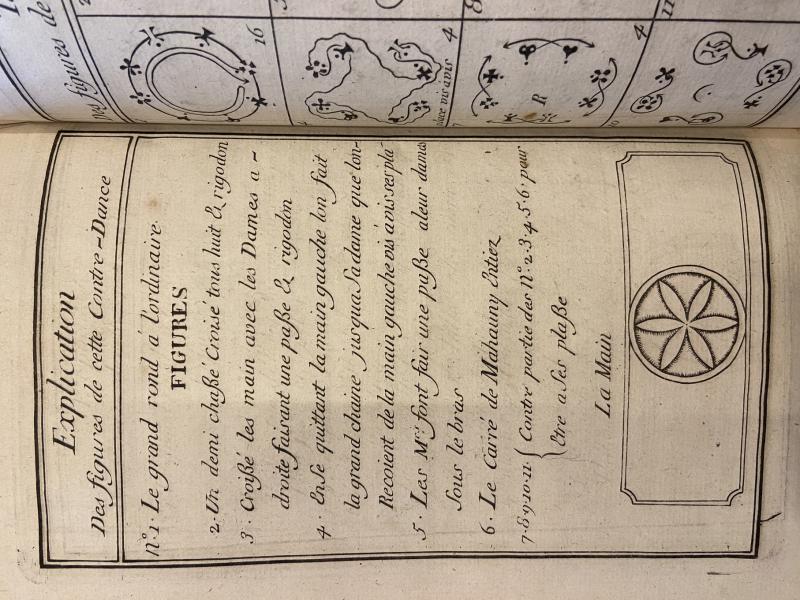 Explication
Des figures de cette Contre-Dance
N.º 1. Le grand rond à l'ordinaire.
FIGURES
2. Un demi chaßé Croisé tous huit & rigodon
3. Croißé les main avec les Dames a -
droite faisant une paße & rigodon
4. En Se quittant la main gauche lon fait
la grand chaine jusqua Sa dame que lon-
Recoient de la main gauche vis à vis ses pla
5. Les M.rs font fair une paße aleur dames
Sous le bras
6. Le Carré de Mahauny Entiez
7.8.9.10.11. { Contre partie des N.º 2.3.4.5.6. pour
Etre a Ses plaße
La Main
figures de
16
4
place vis à vis
8
R
4
11